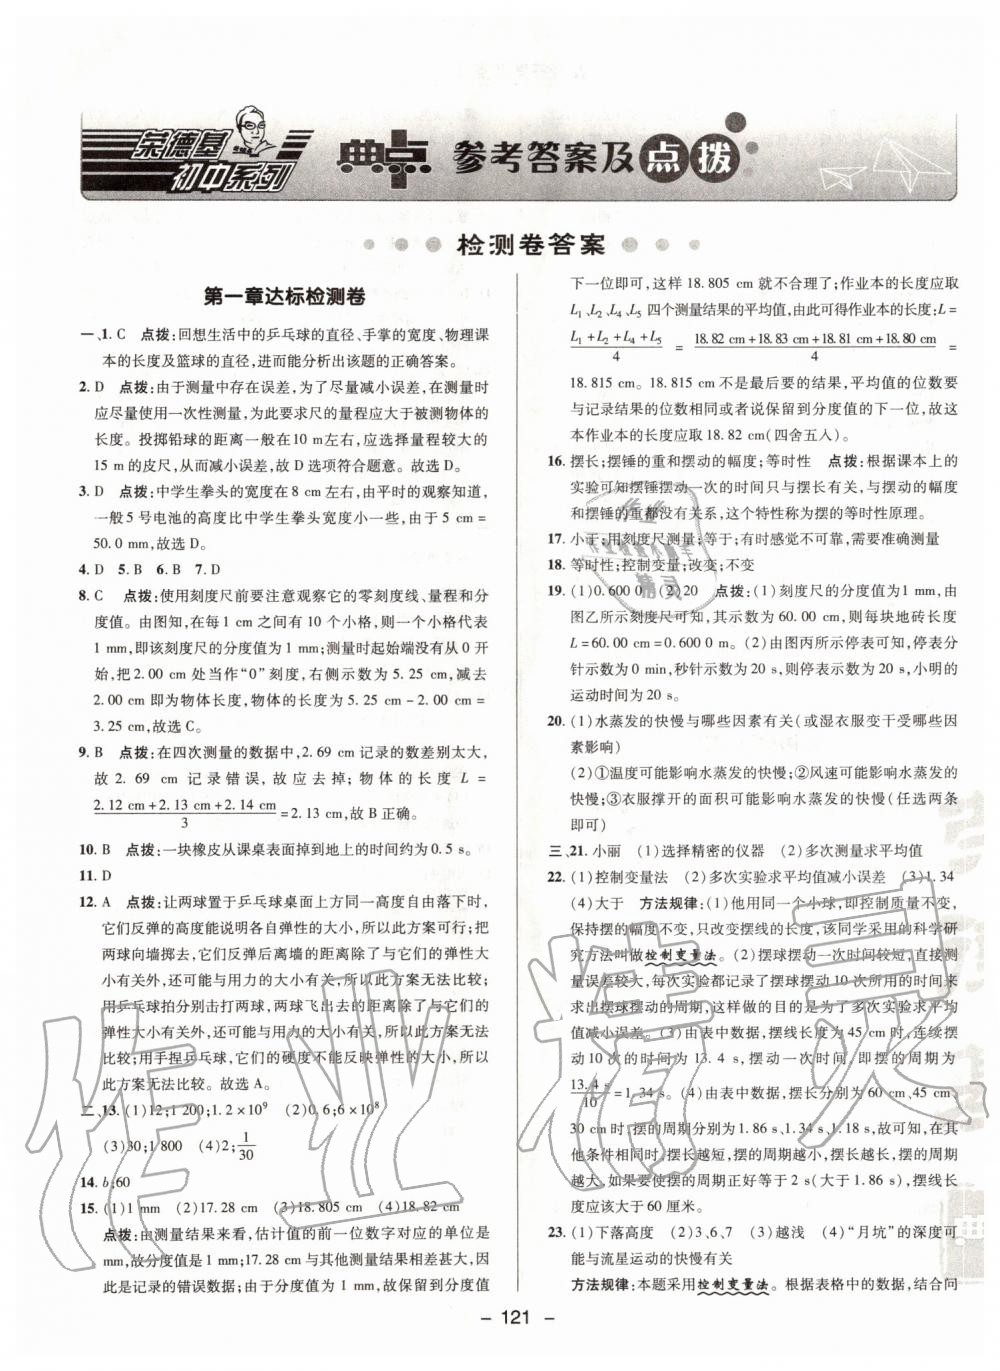 荣德基
初中系列
典点 参考答案及点拨
检测卷答案
第一章达标检测卷
一、1. C 点拨:回想生活中的乒乓球的直径、手掌的宽度、物理课
本的长度及篮球的直径,进而能分析出该题的正确答案。
2. D 点拨:由于测量中存在误差,为了尽量减小误差,在测量时
应尽量使用一次性测量,为此要求尺的量程应大于被测物体的
长度。投掷铅球的距离一般在10 m左右,应选择量程较大的
15 m的皮尺,从而减小误差,故D选项符合题意。故选D。
3. D 点拨:中学生拳头的宽度在8 cm左右,由平时的观察知道,
一般5号电池的高度比中学生拳头宽度小一些,由于5 cm=
50.0 mm,故选D。
4. D 5. B 6. B 7. D
8. C 点拨:使用刻度尺前要注意观察它的零刻度线、量程和分
度值。由图知,在每1 cm之间有10个小格,则一个小格代表
1 mm,即该刻度尺的分度值为1 mm;测量时起始端没有从0开
始,把2.00 cm处当作“0”刻度,右侧示数为5.25 cm,减去
2.00 cm即为物体长度,物体的长度为5.25 cm-2.00 cm=
3.25 cm,故选C。
9. B 点拨:在四次测量的数据中,2.69 cm记录的数差别太大,
故2.69 cm记录错误,故应去掉;物体的长度L=
(2.12 cm+2.13 cm+2.14 cm)/3=2.13 cm,故B正确。
10. B 点拨:一块橡皮从课桌表面掉到地上的时间约为0.5 s。
11. D
12. A 点拨:让两球置于乒乓球桌面上方同一高度自由落下时,
它们反弹的高度能说明各自弹性的大小,所以此方案可行;把
两球向墙掷去,它们反弹后离墙的距离可能除了与它们的弹性
大小有关外,还可能与用力的大小有关,所以此方案无法比较;
用乒乓球拍分别击打两球,两球飞出去的距离除了与它们的
弹性大小有关外,还可能与用力的大小有关,所以此方案无法
比较;用手捏乒乓球,它们的硬度不能反映弹性的大小,所以
此方案无法比较。故选A。
二、13. (1)12;1 200;1.2×10⁹ (2)0.6;6×10⁸
(3)30;1 800 (4)2;1/30
14. b;60
15. (1)1 mm (2)17.28 cm (3)18.805 cm (4)18.82 cm
点拨:由测量结果来看,估计值的前一位数字对应的单位是
mm,故分度值是1 mm;17.28 cm与其他测量结果相差甚大,因
此是记录的错误数据;由于分度值为1 mm,故保留到分度值
下一位即可,这样18.805 cm就不合理了;作业本的长度应取
L₁、L₂、L₄、L₅四个测量结果的平均值,由此可得作业本的长度:L=
(L₁+L₂+L₄+L₅)/4=(18.82 cm+18.83 cm+18.81 cm+18.80 cm)/4=
18.815 cm。18.815 cm不是最后要的结果,平均值的位数要
与记录结果的位数相同或者说保留到分度值的下一位,故这
本作业本的长度应取18.82 cm(四舍五入)。
16. 摆长;摆锤的重和摆动的幅度;等时性 点拨:根据课本上的
实验可知摆锤摆动一次的时间只与摆长有关,与摆动的幅度
和摆锤的重都没有关系,这个特性称为摆的等时性原理。
17. 小于;用刻度尺测量;等于;有时感觉不可靠,需要准确测量
18. 等时性;控制变量;改变;不变
19. (1)0.600 0 (2)20 点拨:(1)刻度尺的分度值为1 mm,由
图乙所示刻度尺可知,其示数为60.00 cm,则每块地砖长度
L=60.00 cm=0.600 0 m。(2)由图丙所示停表可知,停表分
针示数为0 min,秒针示数为20 s,则停表示数为20 s,小明的
运动时间为20 s。
20. (1)水蒸发的快慢与哪些因素有关(或湿衣服变干受哪些因
素影响)
(2)①温度可能影响水蒸发的快慢;②风速可能影响水蒸发的
快慢;③衣服撑开的面积可能影响水蒸发的快慢(任选两条
即可)
三、21. 小丽 (1)选择精密的仪器 (2)多次测量求平均值
22. (1)控制变量法 (2)多次实验求平均值减小误差 (3)1.34
(4)大于 方法规律:(1)他用同一个小球,即控制质量不变,
保持摆的幅度不变,只改变摆线的长度,该同学采用的科学研
究方法叫做控制变量法。(2)摆球摆动一次时间较短,直接测
量误差较大,每次实验都记录了摆球摆动10次所用的时间来
求出摆球摆动的周期,这样做的目的是为了多次实验求平均
值减小误差。(3)由表中数据,摆线长度为45 cm时,连续摆
动10次的时间为13.4 s,摆动一次的时间,即摆的周期为
13.4 s/10=1.34 s。(4)由表中数据,摆长分别为60 cm、45 cm、
30 cm时,摆的周期分别为1.86 s、1.34 s、1.18 s,故可知,在其
他条件相同时,摆长越短,摆的周期越小,摆长越长,摆的周期
越大,故要使摆的周期正好等于2 s(大于1.86 s),摆线长度
应该大于60厘米。
23. (1)下落高度 (2)3、6、7 (3)越浅 (4)“月坑”的深度可
能与流星运动的快慢有关
方法规律:本题采用控制变量法。根据表格中的数据,结合问
- 121 -
作业精灵